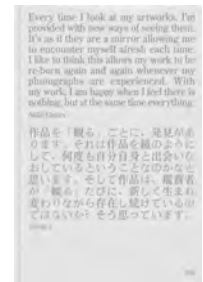 Every time I look at my artworks, I'm
provided with new ways of seeing them.
It's as if they are a mirror allowing me
to encounter myself afresh each time.
I like to think this allows my work to be
re-born again and again whenever my
photographs are experienced. With
my work, I am happy when I feel there is
nothing, but at the same time everything.
作品を「観る」ごとに、発見があ
ります。それは作品を鏡のように
して、何度も自分自身と出会いな
おしているということなのかなと
思います。そして作品は、鑑賞者
が「観る」たびに、新しく生まれ
変わりながら存在し続けているの
ではないか？そう思っています。